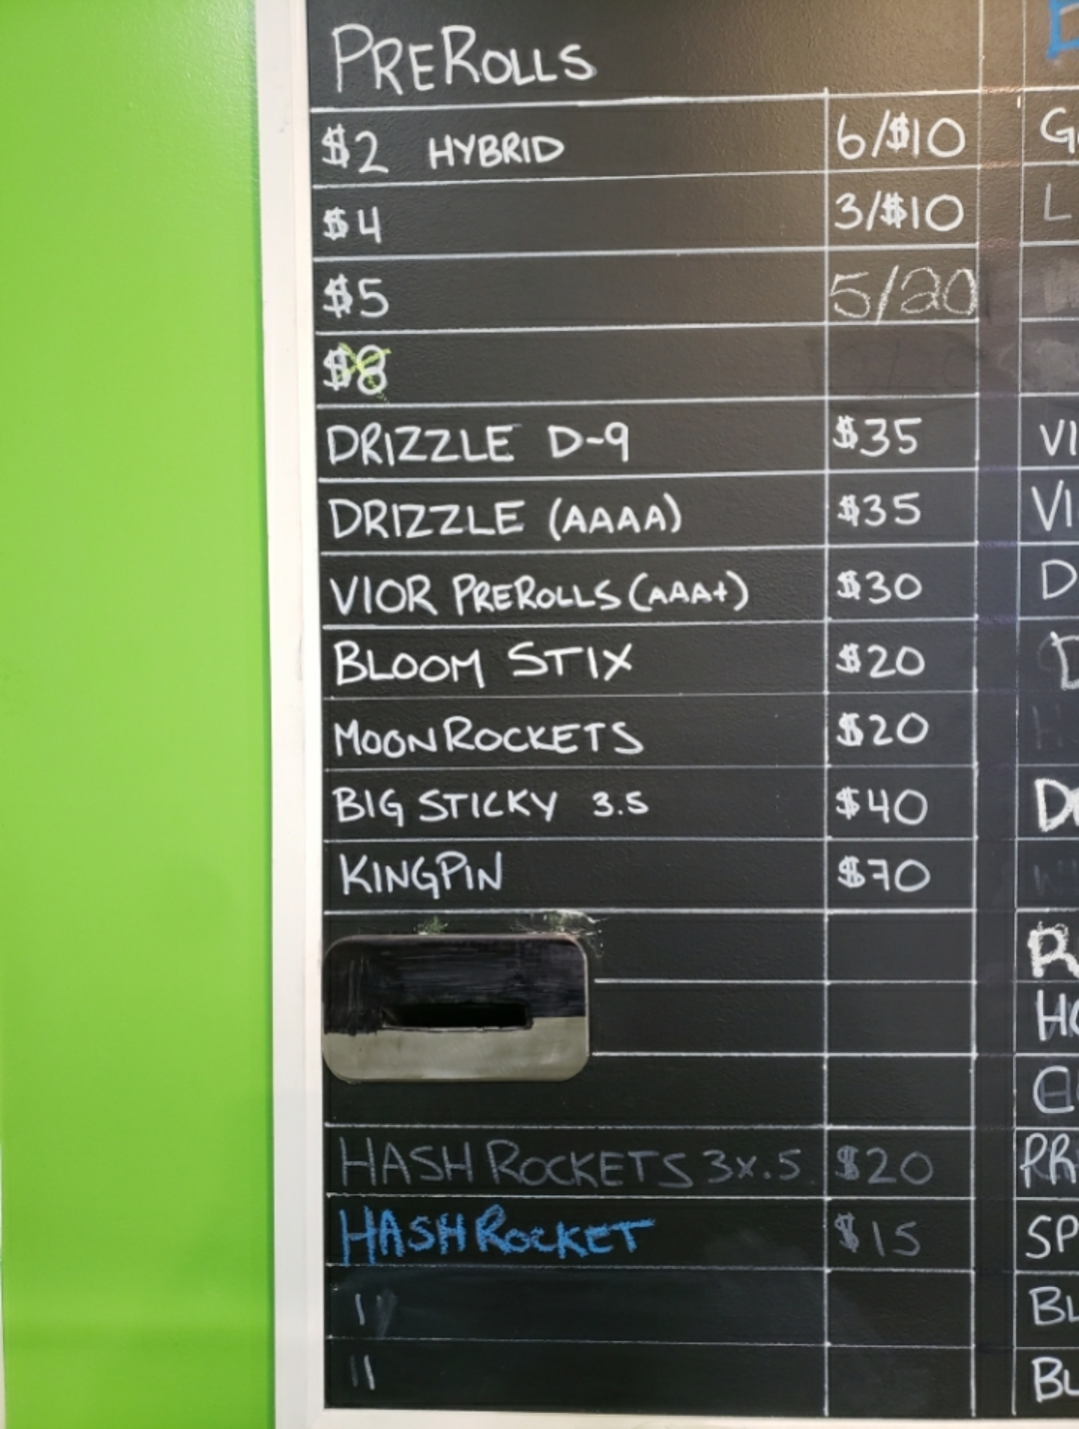 PREROLLS
$2 HYBRID 6/$10
$4 3/$10
$5 5/20
$8
DRIZZLE D-9 $35
DRIZZLE (AAAA) $35
VIOR PREROLLS (AAA+) $30
BLOOM STIX $20
MOONROCKETS $20
BIG STICKY 3.5 $40
KINGPIN $70
HASH ROCKETS 3x.5 $20
HASH ROCKET $15
"
"
G
L
VI
VI
D
D
D
R
HO
PR
SP
BL
BL